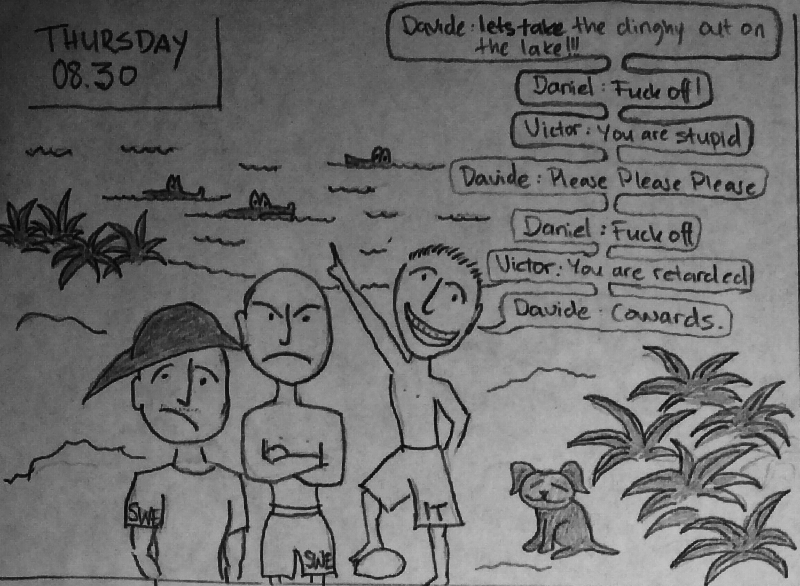 THURSDAY
08.30
Davide: lets take the dinghy out on
the lake!!!
Daniel: Fuck off!
Victor: You are stupid
Davide: Please Please Please
Daniel: Fuck off
Victor: You are retarded
Davide: Cowards.
SWE
SWE
IT